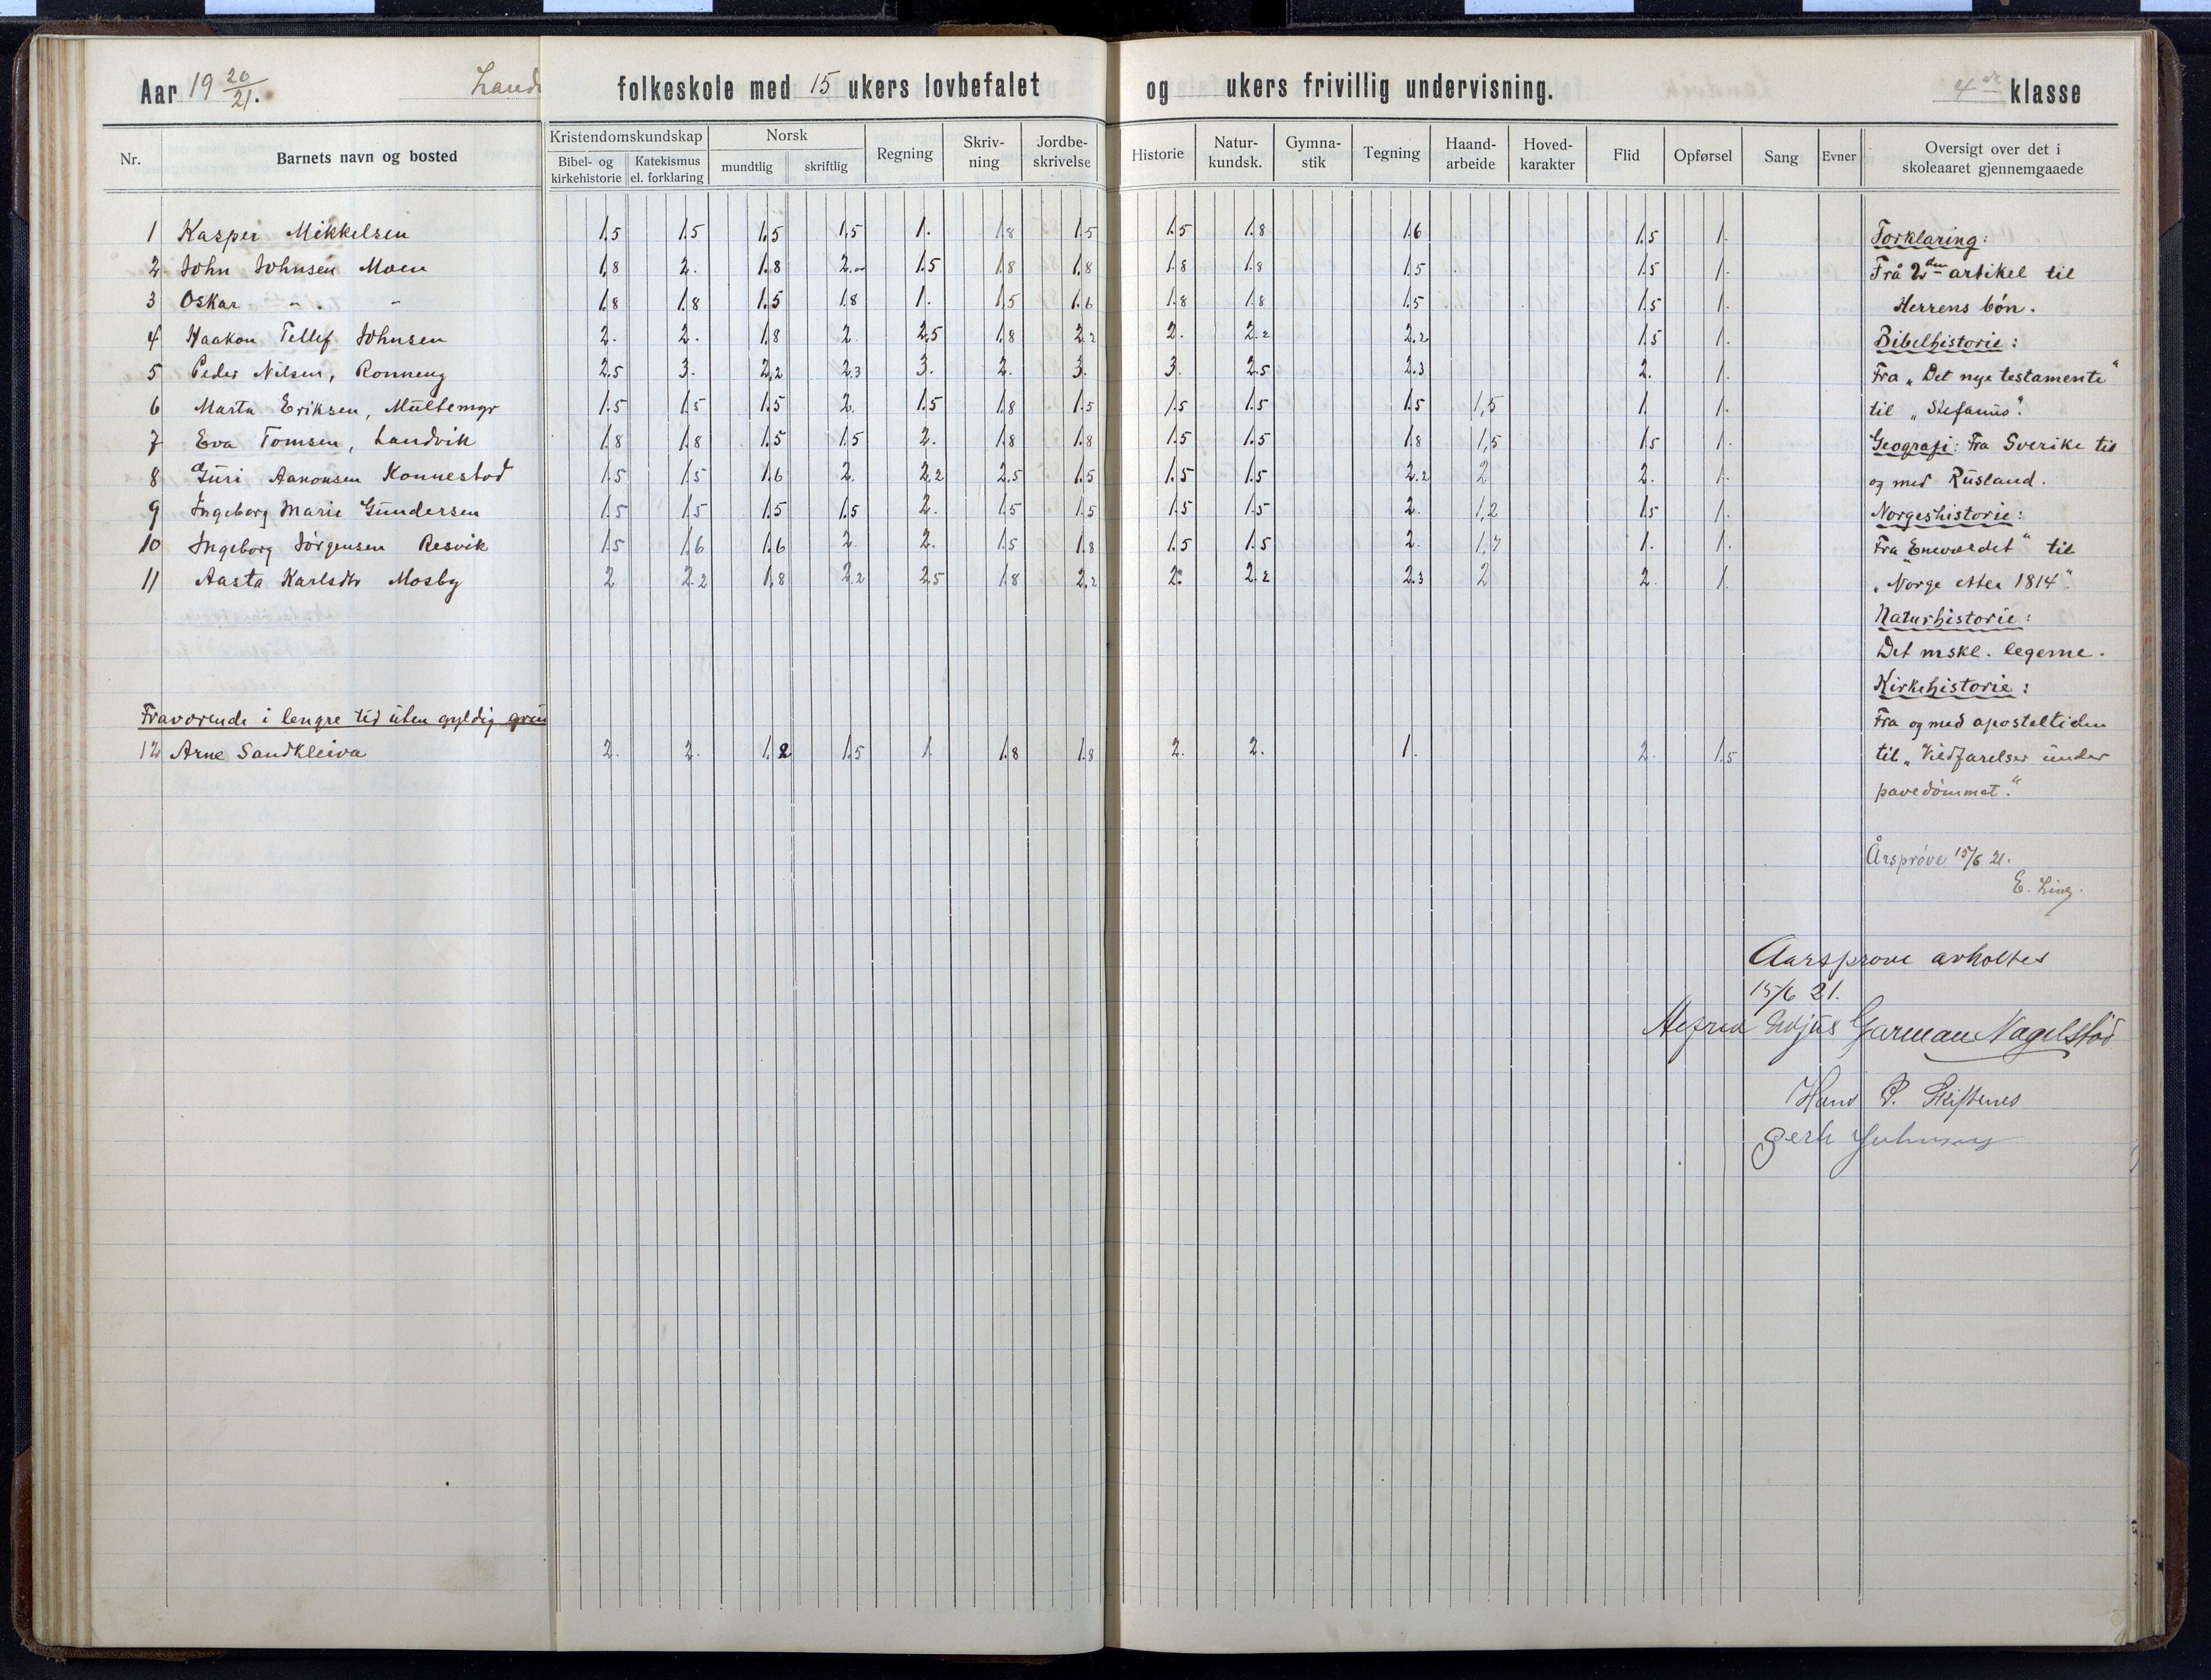 Aar 19 20/21. Landv folkeskole med 15 ukers lovbefalet og ukers frivillig undervisning. 4de klasse
Nr. Barnets navn og bosted Kristendomskundskap Bibel- og kirkehistorie Katekismus el. forklaring Norsk mundtlig skriftlig Regning Skriv-ning Jordbe-skrivelse Historie Natur-kundsk. Gymna-stik Tegning Haand-arbeide Hoved-karakter Flid Opførsel Sang Evner Oversigt over det i skoleaaret gjennemgaaede
1 Kasper Mikkelsen 1.5 1.5 1.5 1.5 1. 1.8 1.5 1.5 1.8 1.6 1.5 1.
2 John Johnsen Moen 1.8 2. 1.8 2. 1.5 1.8 1.8 1.8 1.8 1.5 1.5 1.
3 Oskar " " 1.8 1.8 1.5 1.8 1. 1.5 1.6 1.8 1.8 1.5 1.5 1.
4 Haakon Tellef Johnsen 2. 2. 1.8 2. 2.5 1.8 2.2 2. 2.2 2.2 1.5 1.
5 Peder Nilsen, Ronneng 2.5 3. 2.2 2.3 3. 2. 3. 3. 2.5 2.3 2. 1.
6 Marta Eriksen, Multemyr 1.5 1.5 1.5 2. 1.5 1.8 1.5 1.5 1.5 1.5 1,5 1. 1.
7 Eva Tomsen, Landvik 1.8 1.8 1.5 1.5 2. 1.8 1.8 1.5 1.5 1.8 1,5 1.5 1.
8 Guri Aanonsen Konnestad 1.5 1.5 1.6 2. 2.2 2.5 1.5 1.5 1.5 2.2 2 2. 1.
9 Ingeborg Marie Gundersen 1.5 1.5 1.5 1.5 2. 1.5 1.5 1.5 1.5 2. 1,2 1.5 1.
10 Ingeborg Jørgensen Resvik 1.5 1.6 1.6 2. 2. 1.5 1.8 1.5 1.5 2. 1,7 1. 1.
11 Aasta Karlsdtr Mosby 2 2.2 1.8 2.2 2.5 1.8 2.2 2. 2.2 2.3 2 2. 1.
Fraværende i lengre tid uten gyldig grun
12 Arne Sandkleiva 2. 2. 1.2 1.5 1. 1.8 1.8 2. 2. 1. 2. 1.5
Forklaring:
Frå 2den artikel til
Herrens bøn.
Bibelhistorie:
Fra „Det nye testamente"
til „Stefanus".
Geografi: Fra Sverike til
og med Rusland.
Norgeshistorie:
Fra „Enevældet" til
„Norge etter 1814".
Naturhistorie:
Det mskl. legeme.
Kirkehistorie:
Fra og med aposteltiden
til „Vildfarelser under
pavedømmet."
Årsprøve 15/6 21.
E. Ling.
Aarsprøve avholtes
15/6 21.
Garman Nagelstad
Hans P.
Gerh Johnsen